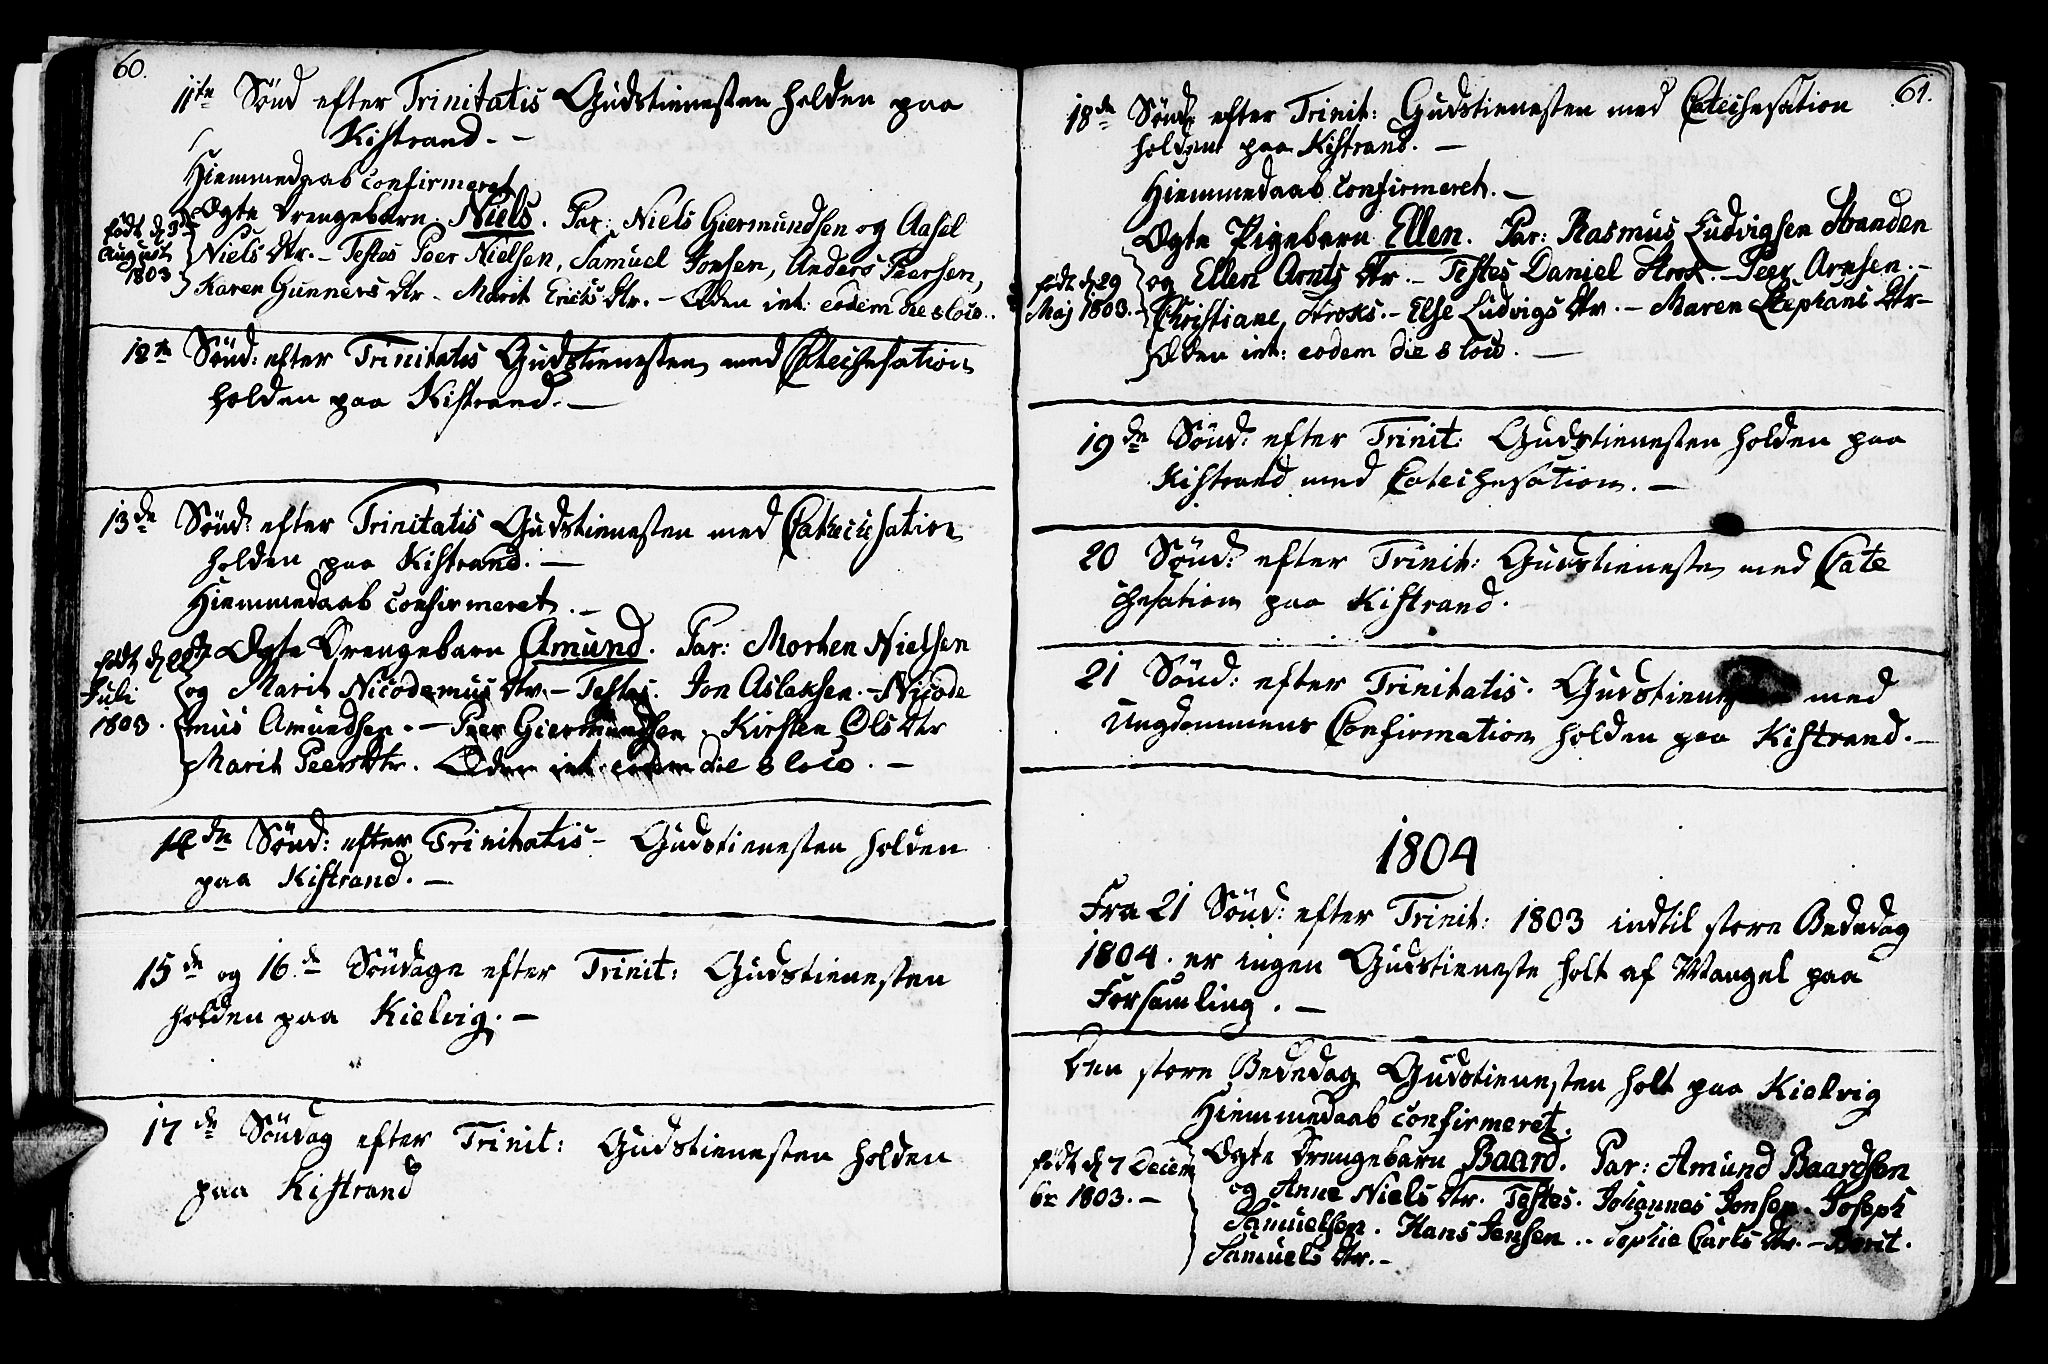 60.
11te Sönd efter Trinitatis Gudstienesten holden paa
Kistrand. -
Hiemmedaab confirmeret
Ægte Drengebarn. Niels. Par: Niels Giermundsen og Aasel
født d 3die
August
1803
Niels Dtr. - Testes Peer Nielsen, Samuel Jonsen, Anders Peersen,
Karen Gunners Dtr - Marit Erichs Dtr. - Eden int: eodem die & loco.
12te Sönd: efter Trinitatis Gudstienesten med Catechesation
holden paa Kistrand. -
13de Sönd: efter Trinitatis Gudstienesten med Catechesation
holden paa Kistrand. -
Hiemmedaab confirmeret. -
Ægte Drengebarn Amund. Par: Morten Nielsen
født d
Juli
1803.
og Marit Nicodemus Dtr. - Testes. Jon Aslaksen. - Nicode
mus Amundsen. - Peer Giermundsen. Kirsten Ols Dtr
Marit Peers Dtr. Eden int. eodem die & loco. -
14de Sönd: efter Trinitatis - Gudstienesten holden
paa Kistrand. -
15de og 16de Söndage efter Trinit: Gudstienesten
holden paa Kielvig. -
17de Söndag efter Trinit: Gudstienesten holden
paa Kistrand
61.
18de Sönd: efter Trinit: Gudstienesten med Catechesation
holden paa Kistrand. -
Hiemmedaab confirmeret. -
Ægte Pigebarn Ellen. Par: Rasmus Ludvigsen Stranden
født d 29
Maj 1803. -
og Ellen Arnts Dtr. - Testes Daniel Strok. - Peer Arnsen. -
Christiane Stroks. - Else Ludvigs Dtr. - Maren Stephans Dtr -
Eden int: eodem die & loco. -
19de Sönd: efter Trinit: Gudstienesten holden paa
Kistrand med Catechesation. -
20 Sönd: efter Trinit: Gudstieneste med Cate
chesation paa Kistrand.
21 Sönd: efter Trinitatis. Gudstienesten med
Ungdommens Confirmation holden paa Kistrand. -
1804
Fra 21 Sönd: efter Trinit: 1803 indtil store Bededag
1804. er ingen Gudstieneste holt af Mangel paa
Forsamling. -
Den store Bededag Gudstienesten holt paa Kielvig
Hiemmedaab confirmeret.
Ægte Drengebarn Baard. Par: Amund Baardsen
født d 7 Decem
br 1803. -
og Anne Niels Dtr. Testes. Johannes Jonsen. Joseph
Samuelsen. Hans Jensen.. Sophie Carls Dtr. - Berit.
Samuels Dtr. -